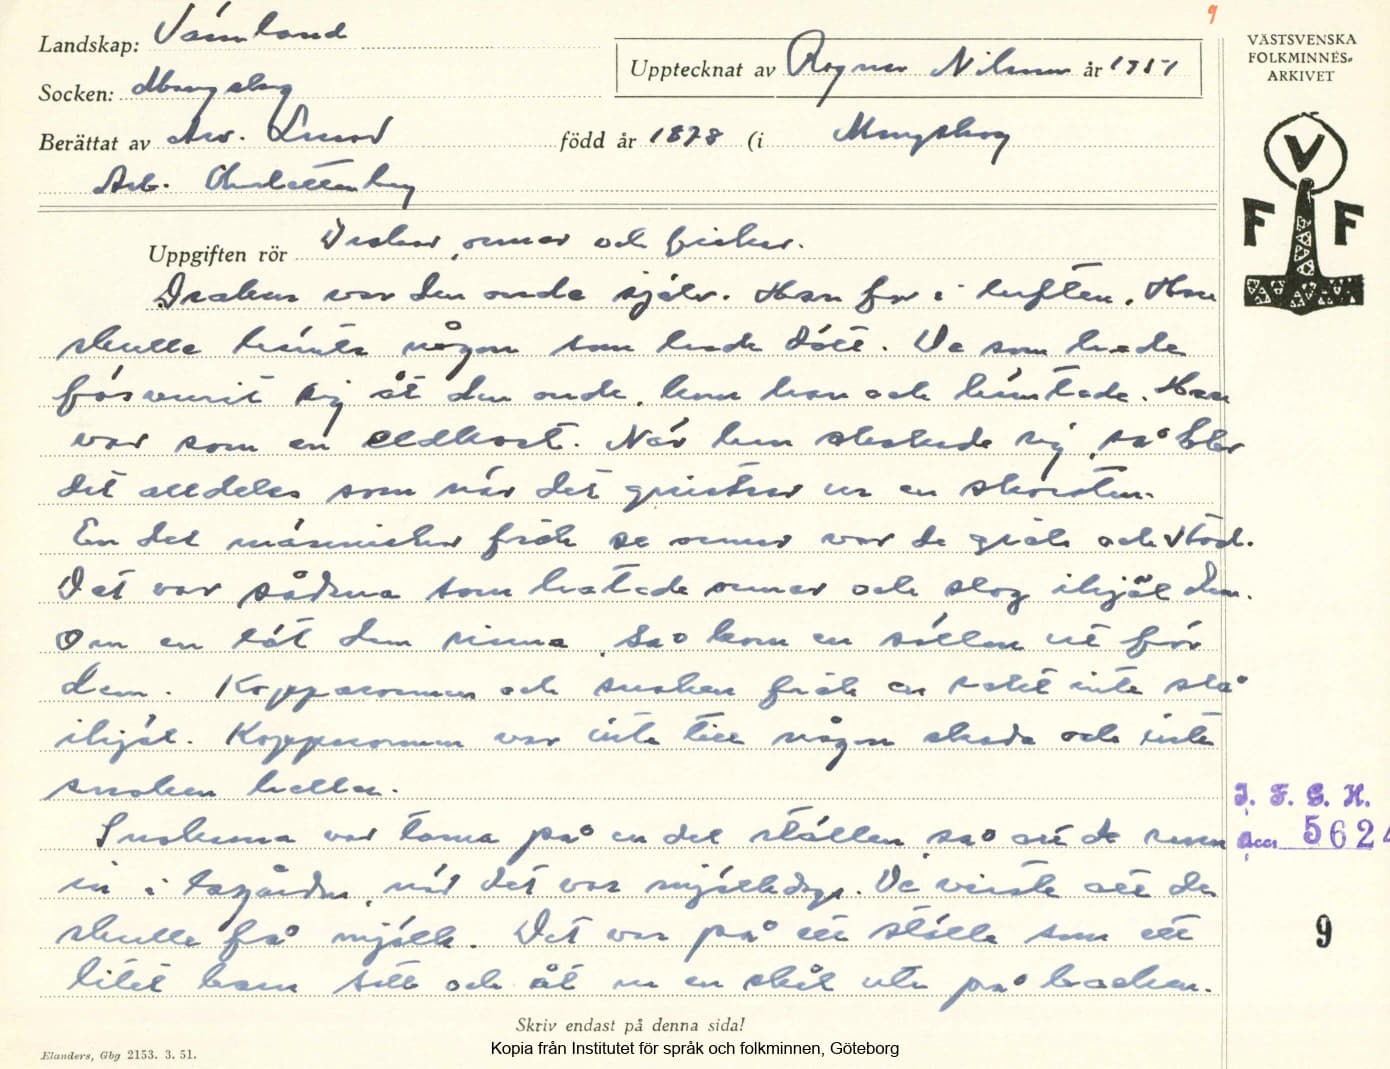 9
Landskap: Värmland
Socken: Mangskog
Berättat av Arv. Lund
Arb. Charlottenberg
Upptecknat av Ragnar Nilsson år 1951
född år 1878 (i Mangskog
VÄSTSVENSKA
FOLKMINNES-
ARKIVET
V
F F
Uppgiften rör Drakar, ormar och fiskar.
Draken var den onde själv. Han for i luften. Han
skulle hämta någon som hade dött. De som hade
försvurit sig åt den onde, kom han och hämtade. Han
var som en eldkvast. När han skakade sig, så blev
det alldeles som när det gnistrar ur en skorsten.
En del människor fick se ormar var de gick och stod.
Det var sådana som hatade ormar och slog ihjäl dem.
Om en lät dem rinna, så kom en sällan ut för
dem. Kopparormen och snoken fick en rakt inte slå
ihjäl. Kopparormen var inte till någon skada och inte
snoken heller.
Snokarna var tama på en del ställen, så att de rann
in i lagården, när det var mjölkdags. De visste att de
skulle få mjölk. Det var på ett ställe som ett
litet barn satt och åt ur en skål ute på backen.
J. F. G. H.
Acc. 5624
9
Skriv endast på denna sida!
Elanders, Gbg 2153. 3. 51.
Kopia från Institutet för språk och folkminnen, Göteborg